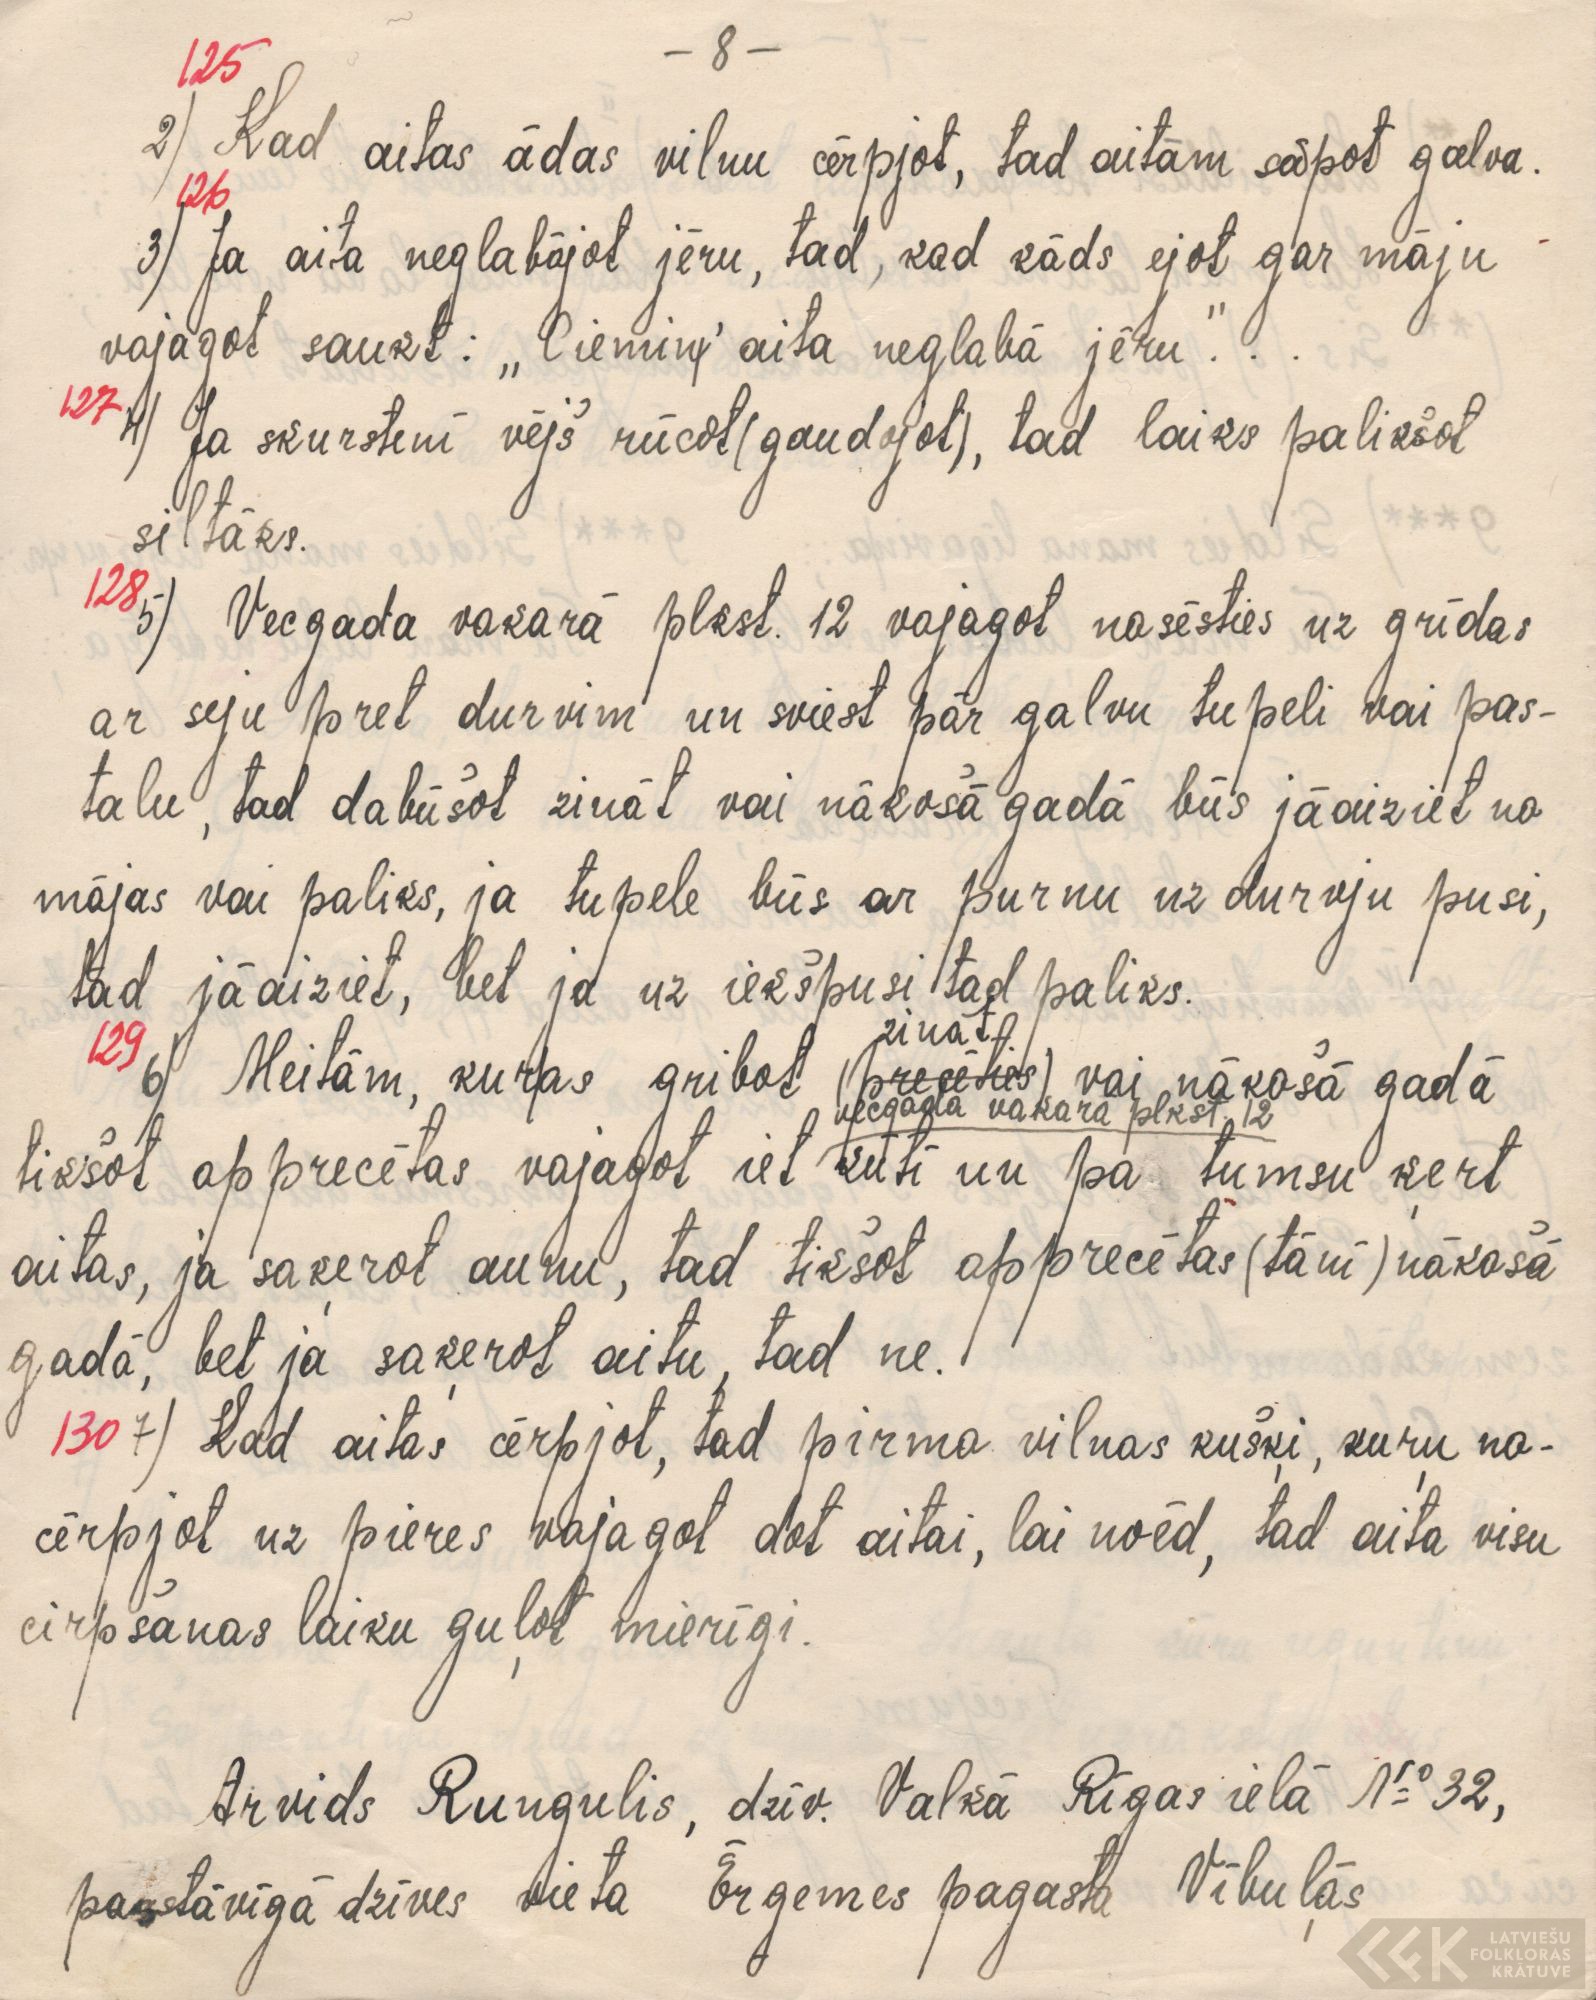 - 8 -
125
2) Kad aitas ādas vilnu cērpjot, tad aitām sāpot galva.
126
3) Ja aita neglabājot jēru, tad, kad kāds ejot gar māju
vajagot saukt: „Ciemiņ' aita neglabā jēru". . .
127 4) Ja skurstenī vējš rūcot (gaudojot), tad laiks palikšot
siltāks.
128 5) Vecgada vakarā plkst. 12 vajagot nosēsties uz grīdas
ar seju pret durvīm un sviest pār galvu tupeli vai pas-
talu, tad dabūšot zināt vai nākošā gadā būs jāaiziet no
mājas vai paliks, ja tupele būs ar purnu uz durvju pusi,
tad jāaiziet, bet ja uz iekšpusi tad paliks.
zināt
129 6) Meitām, kuŗas gribot (precēties) vai nākošā gadā
vecgada vakarā plkst. 12
tikšot apprecētas vajagot iet kūtī un pa tumsu ķert
aitas, ja saķerot aunu, tad tikšot apprecētas (tānī) nākošā
gadā, bet ja saķerot aitu, tad ne.
130 7) Kad aitas cērpjot, tad pirmo vilnas kušķi, kuŗu no-
cērpjot uz pieres vajagot dot aitai, lai noēd, tad aita visu
cirpšanas laiku guļot mierīgi.
Arvids Rungulis, dzīv. Valkā Rīgas ielā № 32,
pastāvīgā dzīves vieta Ērgemes pagasta Vībuļās
LATVIEŠU
FOLKLORAS
KRĀTUVE